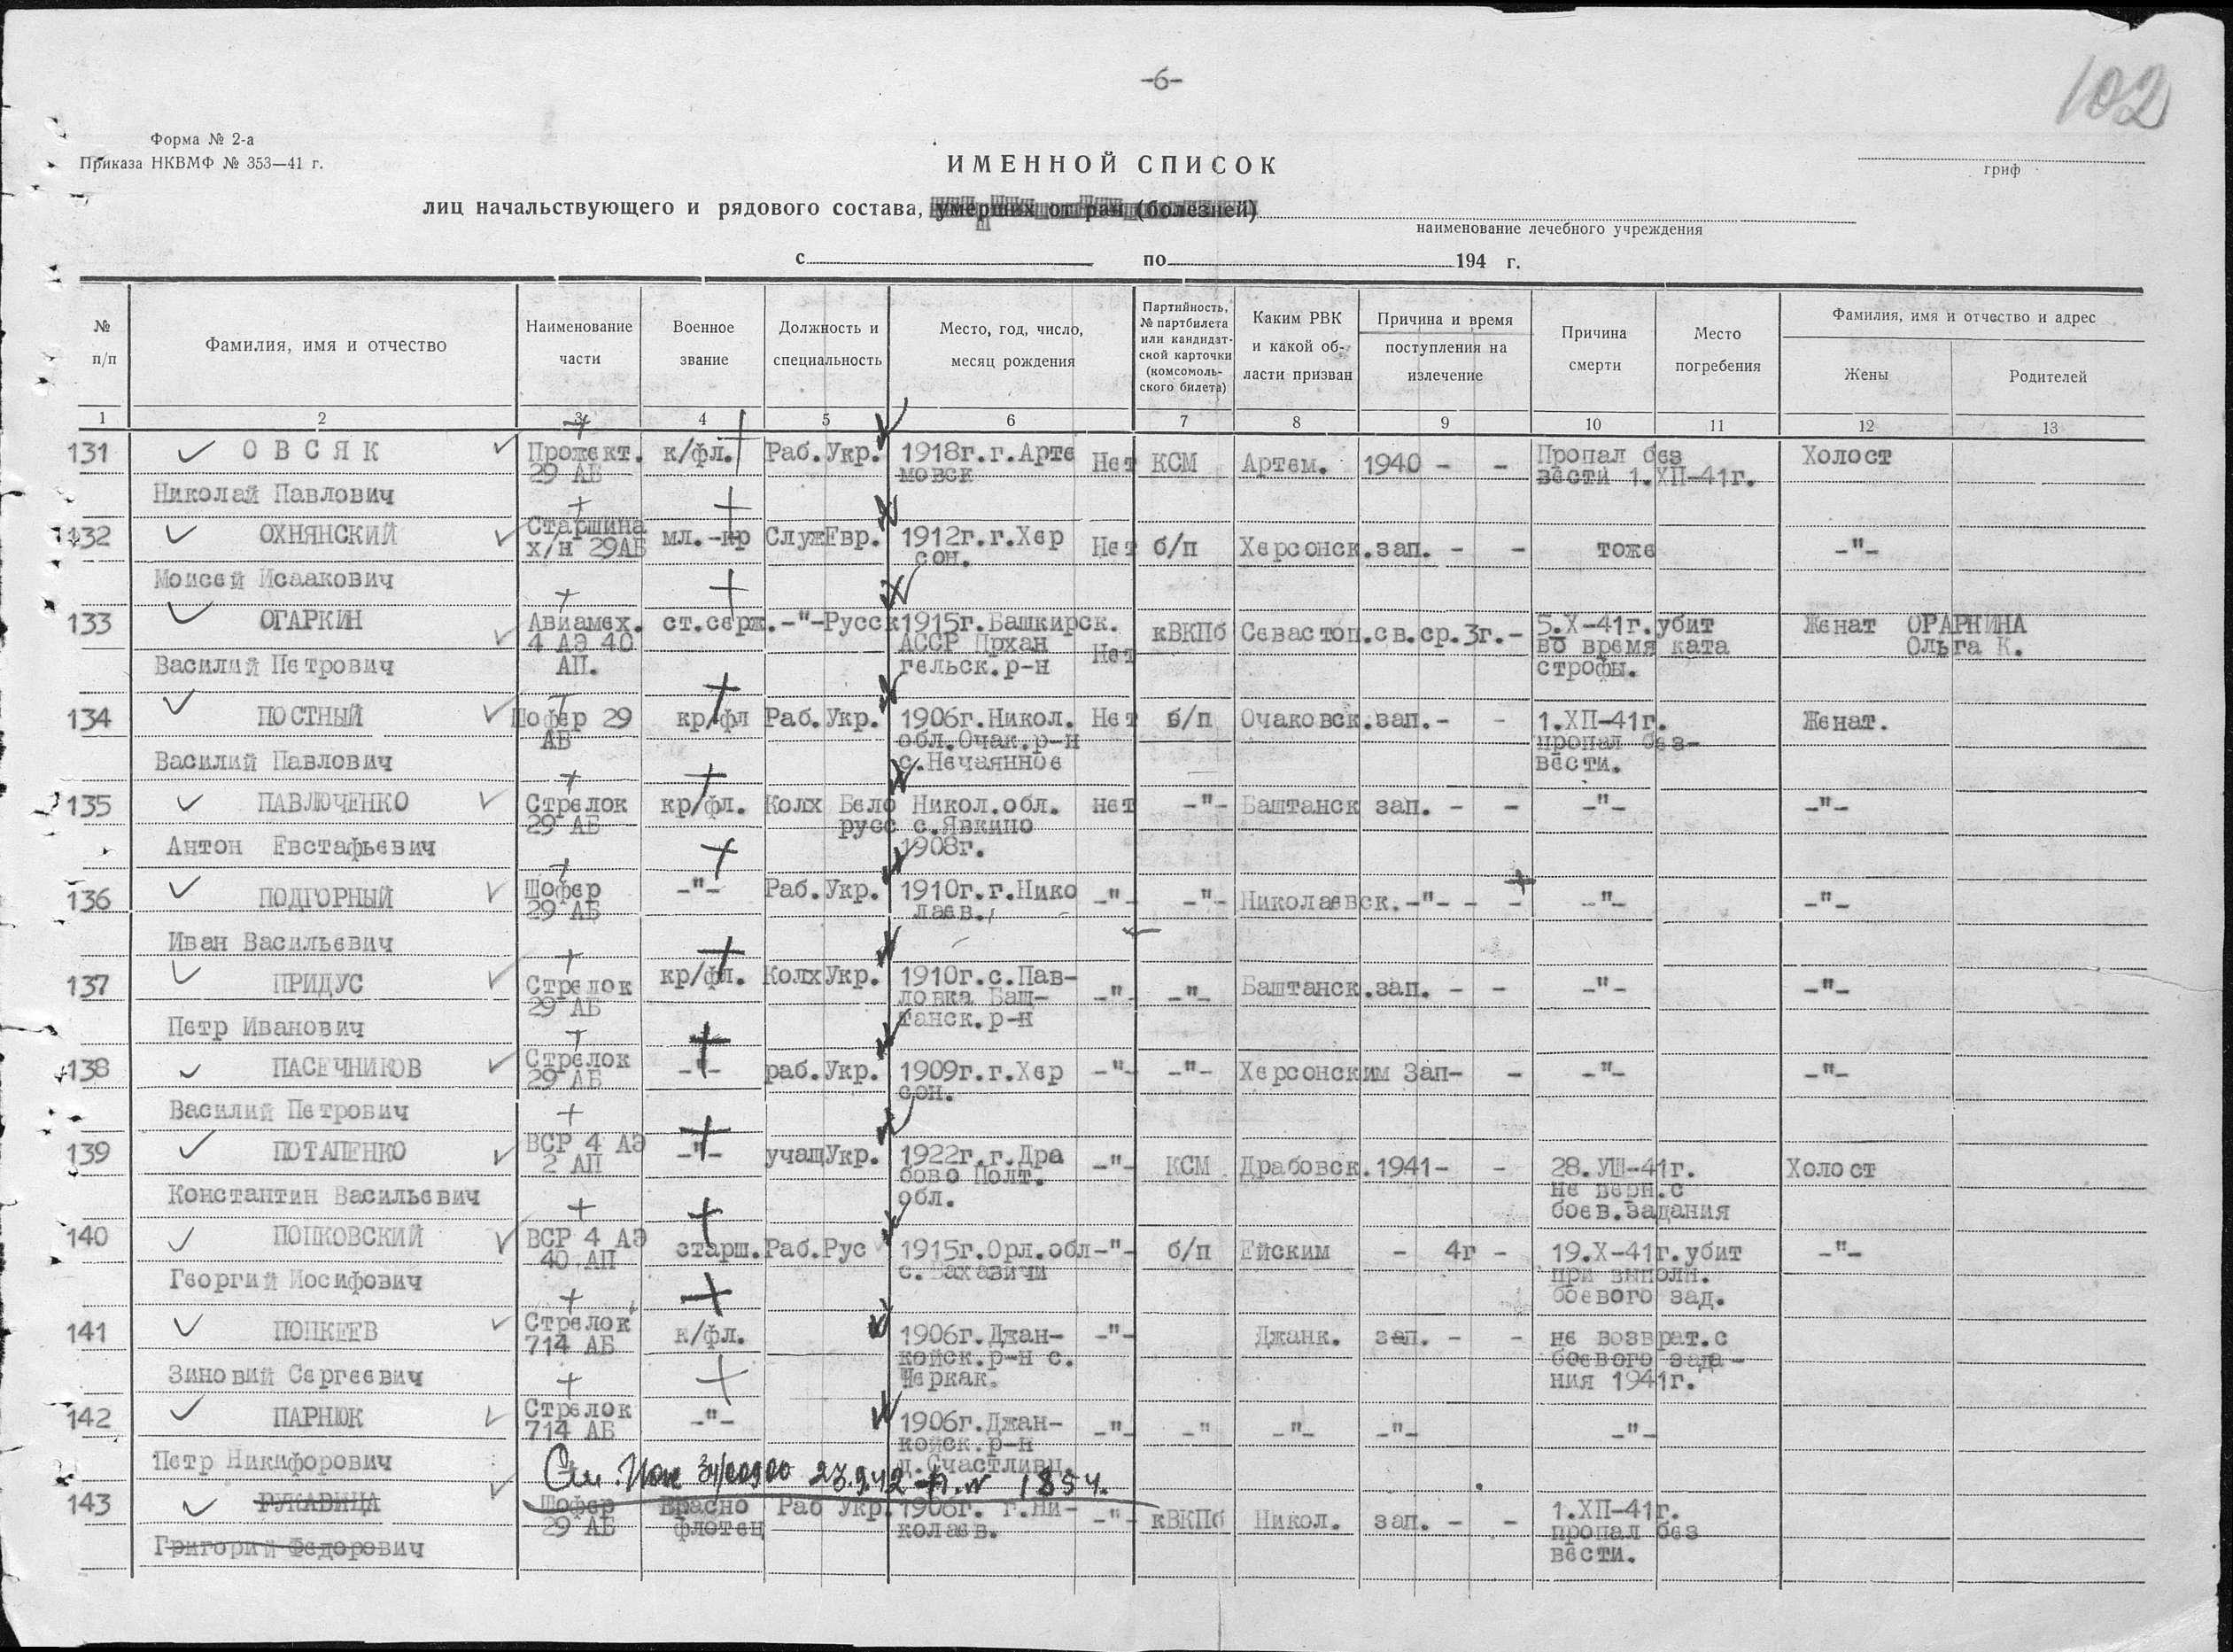 -6-
102
Форма № 2-а
Приказа НКВМФ № 353—41 г.
ИМЕННОЙ СПИСОК
гриф
лиц начальствующего и рядового состава, умерших от ран (болезней)
наименование лечебного учреждения
с по 194 г.
№ п/п
Фамилия, имя и отчество
Наименование части
Военное звание
Должность и специальность
Место, год, число, месяц рождения
Партийность, № партбилета или кандидатской карточки (комсомольского билета)
Каким РВК и какой области призван
Причина и время поступления на излечение
Причина смерти
Место погребения
Фамилия, имя и отчество и адрес
Жены
Родителей
1 2 3 4 5 6 7 8 9 10 11 12 13
131 ОВСЯК Прожект. к/фл. Раб. Укр. 1918г.г.Арте Нет КСМ Артем. 1940 - - Пропал без Холост
29 АБ мовск вести 1.ХП-41г.
Николай Павлович
132 ОХНЯНСКИЙ Старшина мл.-кр Служ Евр. 1912г.г.Хер Нет б/п Херсонск.зап. - - тоже -"-
х/н 29АБ сон.
Моисей Исаакович
133 ОГАРКИН Авиамех. ст.серж. -"- Русск 1915г.Башкирск. кВКПб Севастоп.св.ср.3г.- 5.Х-41г.убит Женат ОРАРКИНА
4 АЭ 40 АССР Прхан Нет во время ката Ольга К.
Василий Петрович АП. гельск.р-н строфы.
134 ПОСТНЫЙ Шофер 29 кр/фл Раб. Укр. 1906г.Никол. Нет б/п Очаковск.зап.- - 1.ХП-41г. Женат.
АБ обл.Очак.р-н пропал без-
Василий Павлович с.Нечаянное вести.
135 ПАВЛЮЧЕНКО Стрелок кр/фл. Колх Бело Никол.обл. нет -"- Баштанск зап. - - -"- -"-
29 АБ русс с.Явкино
Антон Евстафьевич 1908г.
136 ПОДГОРНЫЙ Шофер -"- Раб. Укр. 1910г.г.Нико -"- -"- Николаевск.-"- - - -"- -"-
29 АБ лаев.
Иван Васильевич
137 ПРИДУС Стрелок кр/фл. Колх Укр. 1910г.с.Пав- -"- -"- Баштанск.зап. - - -"- -"-
29 АБ ловка Баш-
Петр Иванович танск.р-н
138 ПАСЕЧНИКОВ Стрелок -"- раб. Укр. 1909г.г.Хер -"- -"- Херсонским Зап- - -"- -"-
29 АБ сон.
Василий Петрович
139 ПОТАПЕНКО ВСР 4 АЭ -"- учащ Укр. 1922г.г.Дра -"- КСМ Драбовск.1941- - 28.УШ-41г. Холост
2 АП бово Полт. не верн.с
Константин Васильевич обл. боев.задания
140 ПОПКОВСКИЙ ВСР 4 АЭ старш. Раб. Рус 1915г.Орл.обл -"- б/п Ейским - 4г - 19.Х-41г.убит -"-
40 АП при выполн.
Георгий Иосифович боевого зад.
141 ПОПКЕЕВ Стрелок к/фл. 1906г.Джан- -"- Джанк. зап. - - не возврат.с
714 АБ койск.р-н с. боевого зада-
Зиновий Сергеевич ния 1941г.
142 ПАРНЮК Стрелок -"- 1906г.Джан- -"- -" -"- -"- -"-
714 АБ койск.р-н
Петр Никифорович д.Счастливц.
23.9.42 1854.
143 РУКАВИЦА Шофер Красно Раб Укр. 1906г. г.Ни- -"- кВКПб Никол. зап. - - 1.ХП-41г.
29 АБ флотец колаев. пропал без
Григорий Федорович вести.